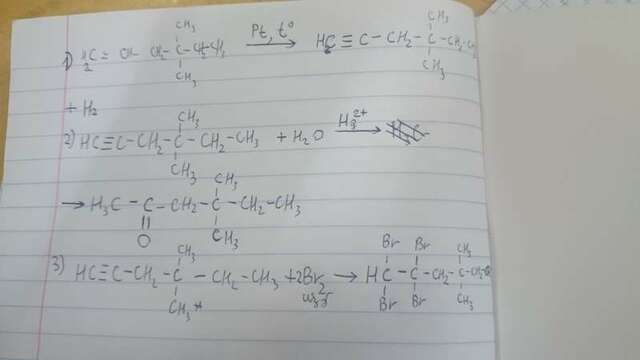 1) H2C = CH - CH2 - C(CH3)(CH3) - CH2 - CH3 Pt, t° → HC ≡ C - CH2 - C(CH3)(CH3) - CH2 - CH3
+ H2
2) HC ≡ C - CH2 - C(CH3)(CH3) - CH2 - CH3 + H2O Hg2+ →
→ H3C - C(=O) - CH2 - C(CH3)(CH3) - CH2 - CH3
3) HC ≡ C - CH2 - C(CH3)(CH3) - CH2 - CH3 + 2Br2 → HC(Br)(Br) - C(Br)(Br) - CH2 - C(CH3)(CH3) - CH2